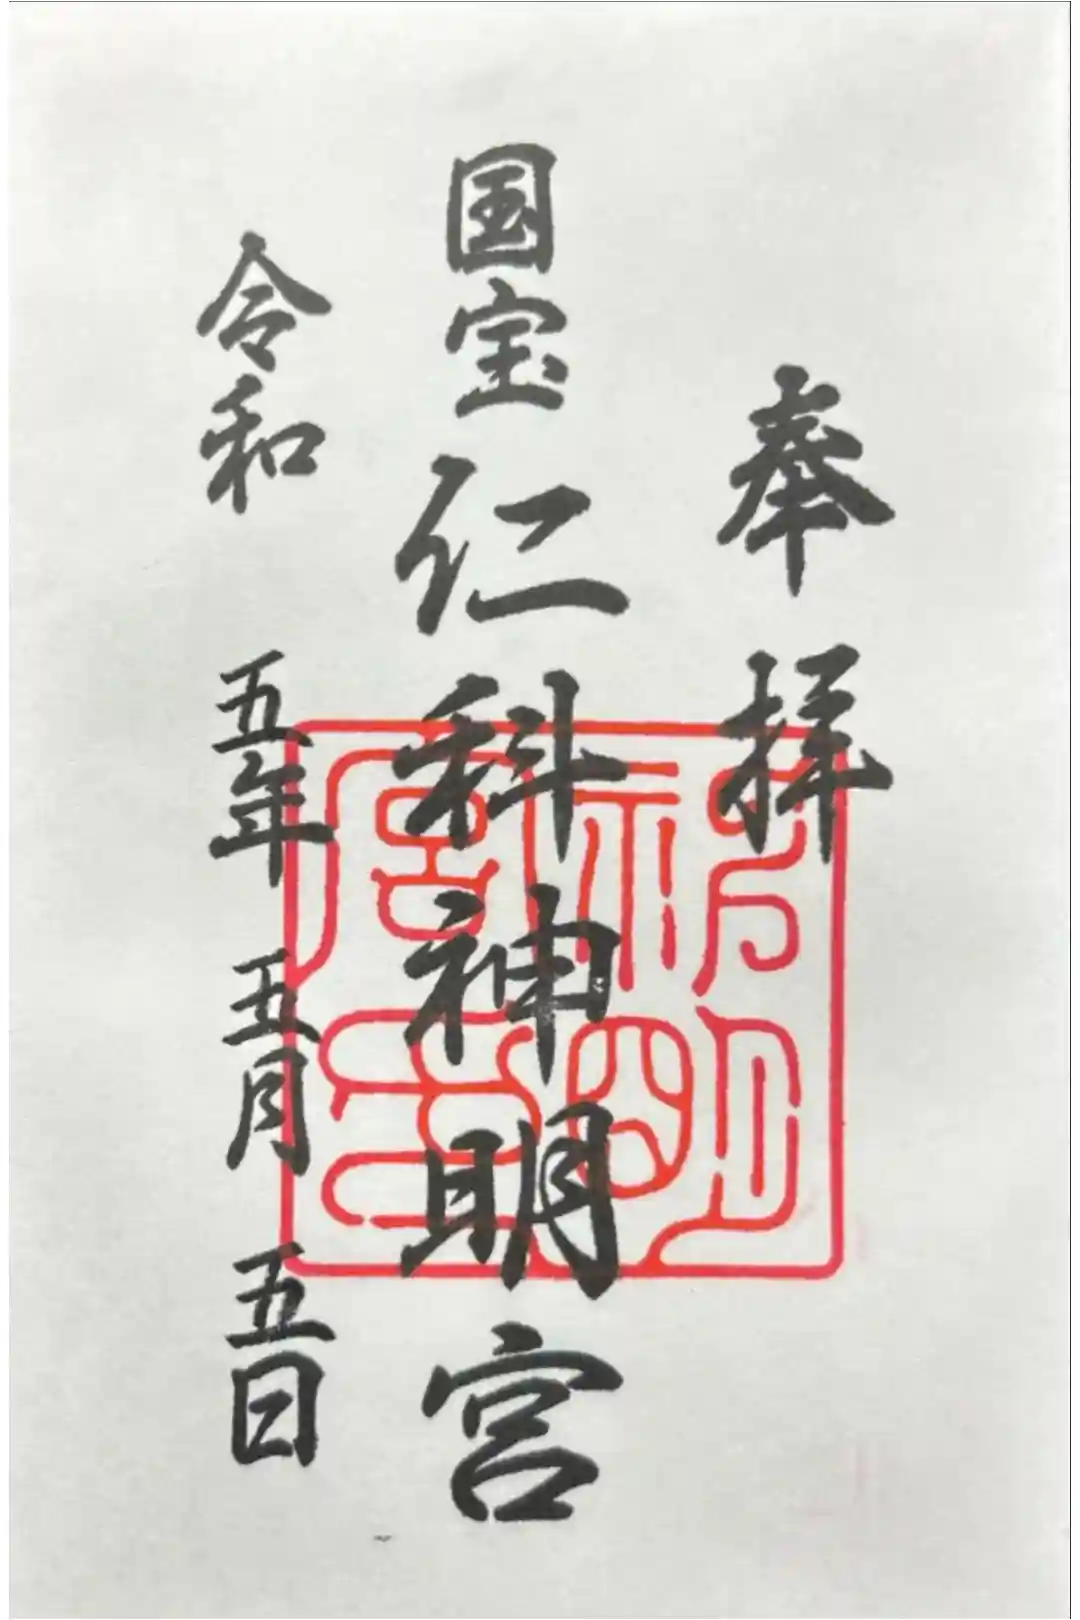 奉拝
国宝仁科神明宮
令和五年五月五日